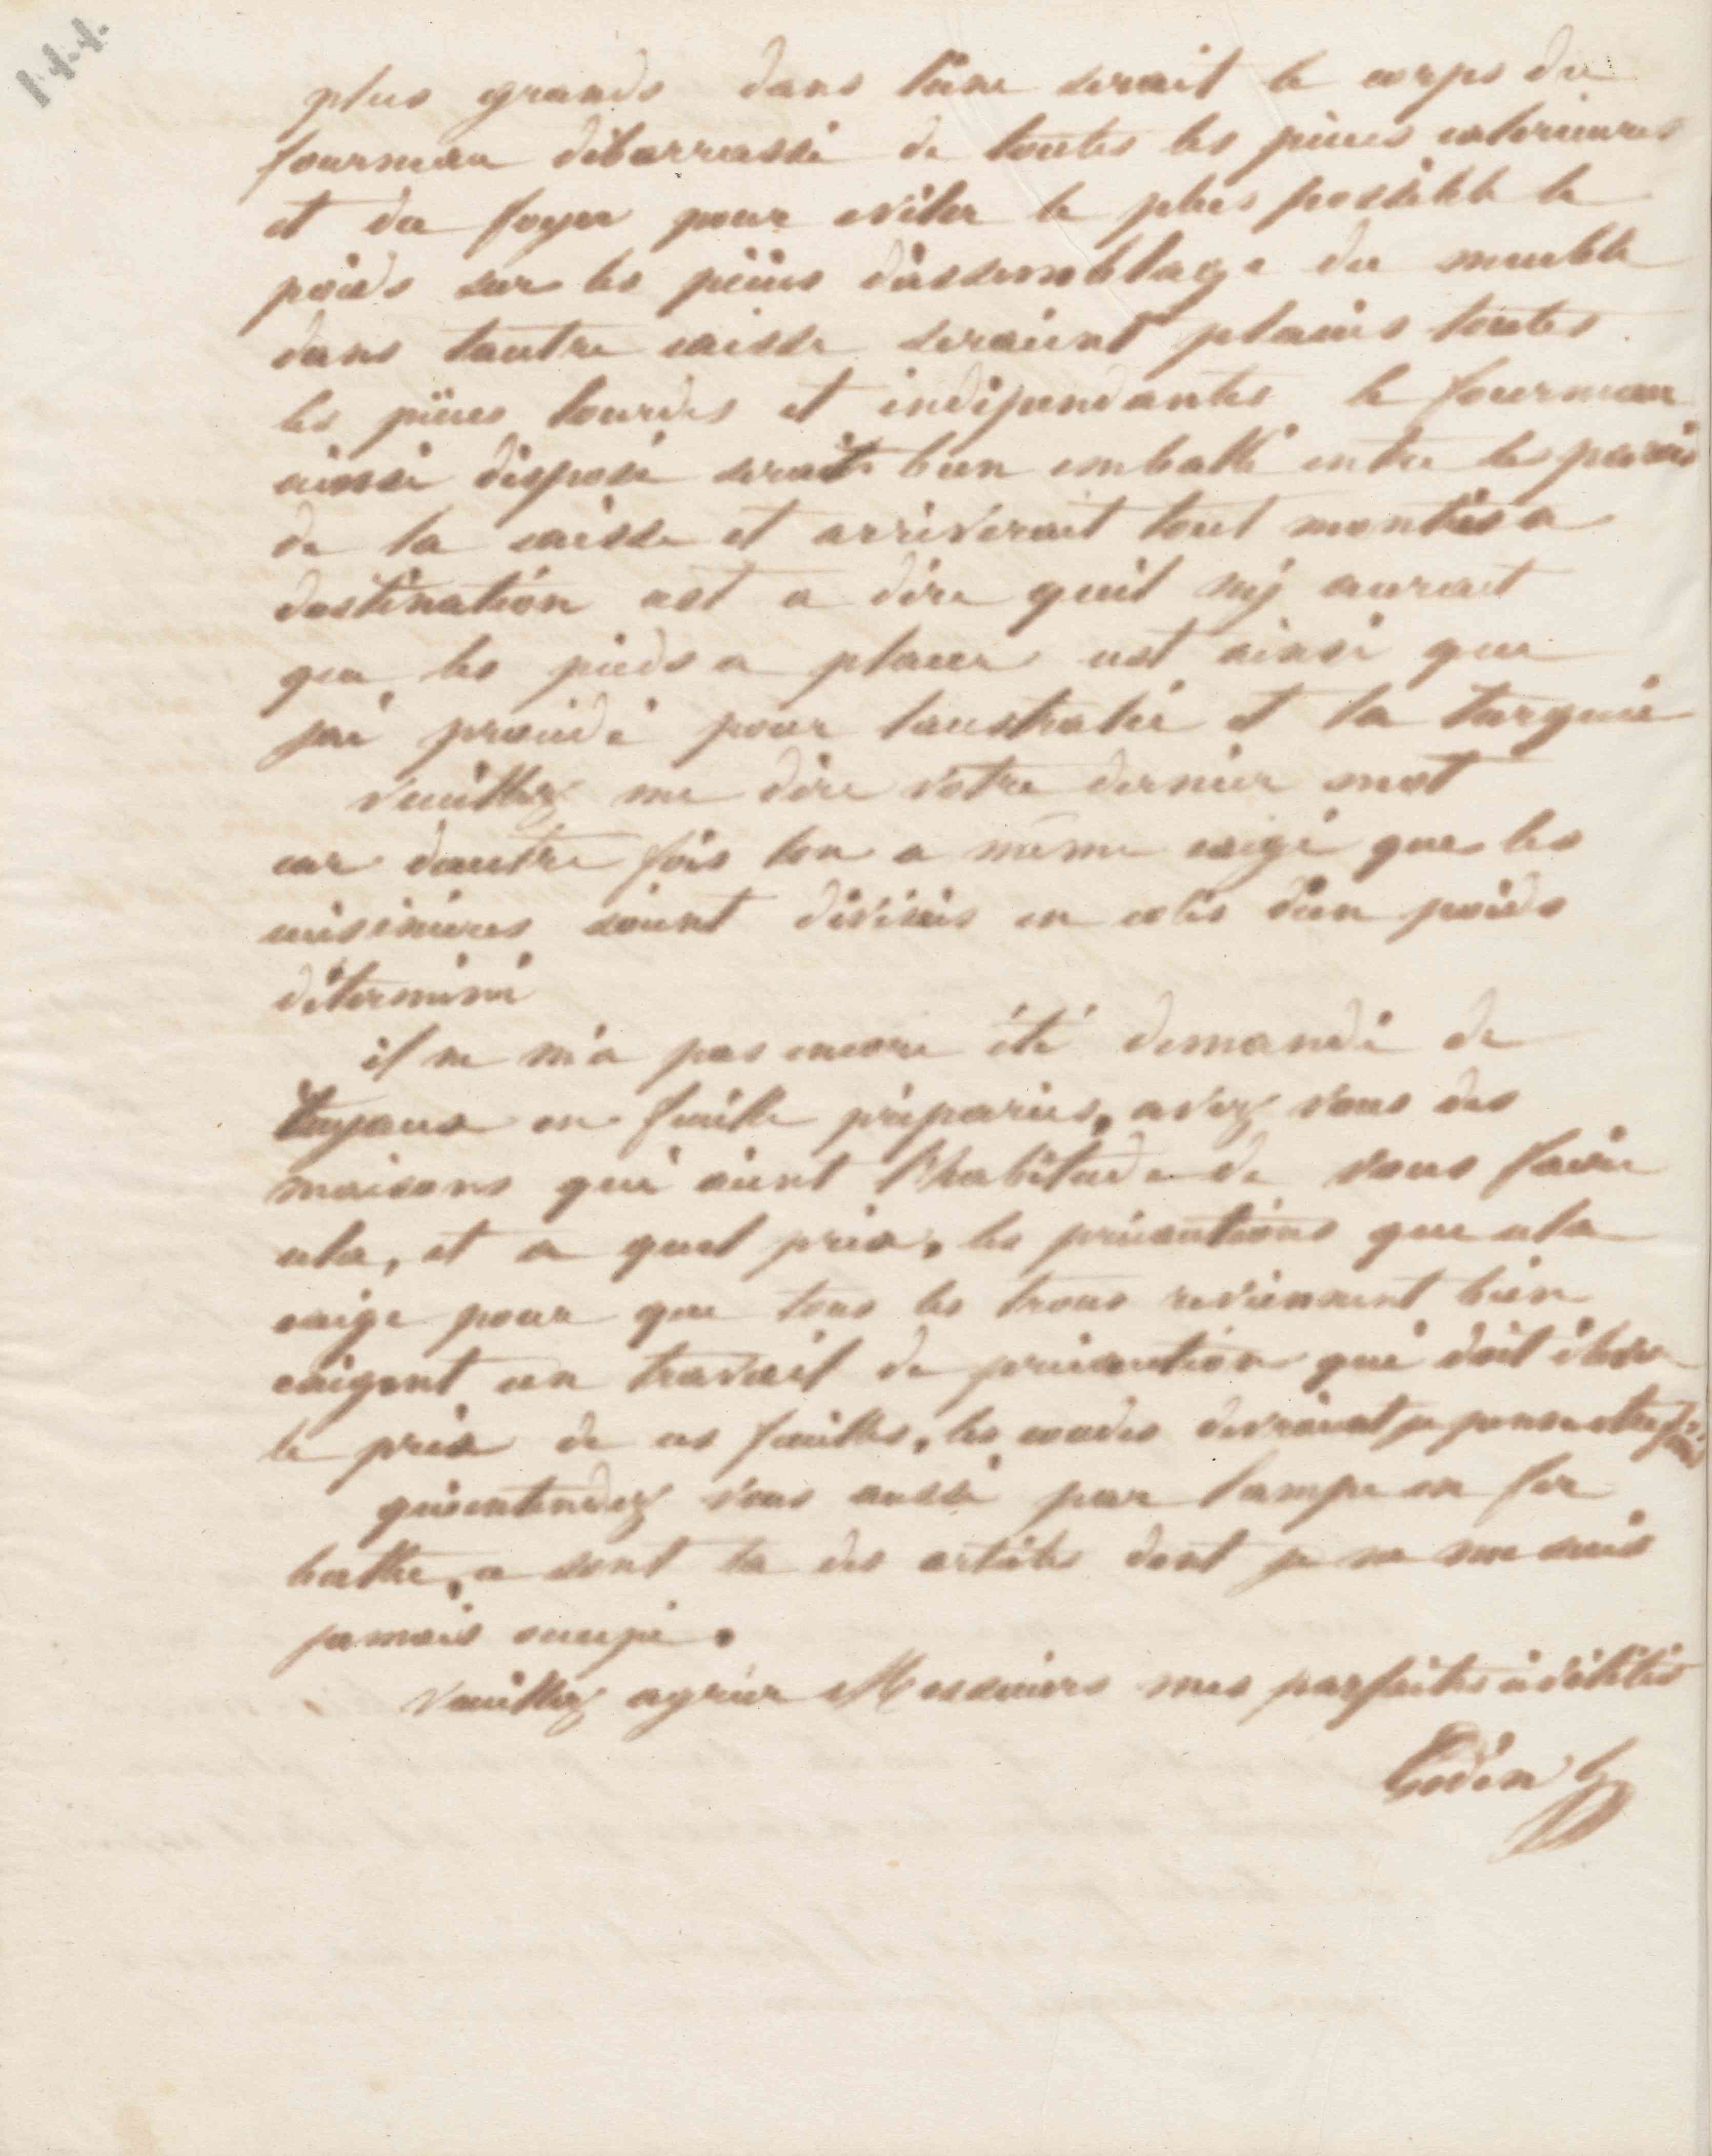 144
plus grands dans l'une serait le corps du
fourneau débarrassé de toutes les pièces exterieures
et du foyer pour eviter le plus possible le
poids sur les pièces d'assemblage du meuble
dans l'autre caisse seraient placées toutes
les pièces lourdes et indépendantes le fourneau
ainsi disposé serait bien emballé entre les parois
de la caisse et arriverait tout montés a
destination cest a dire quil ny aurait
que les pieds a placer cest ainsi que
jai procédé pour laustralie et la turquie
veuillez me dire votre dernier mot
car dautre fois lon a même exigé que les
cuisinières soient divisées en colis d'un poids
déterminé
il ne m'a pas encore été demandé de
tuyaux en feuille préparées, avez vous des
maisons qui aient l'habitude de vous faire
cela, et a quel prix, les précautions que cela
exige pour que tous les trous reviennent bien
exigent un travail de précaution qui doit élever
le prix de ces feuilles, les coudes devraient je pense etre finis
qu'entendez vous aussi par lampe en fer
battu, ce sont la des articles dont je ne me suis
jamais occupé.
Veuillez agréer Messieurs mes parfaites civilités
Godin